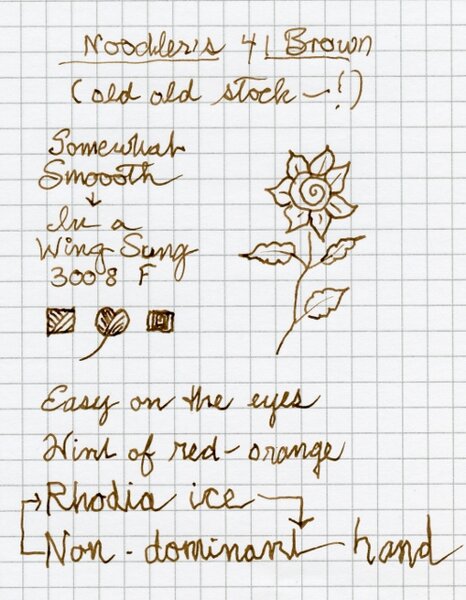 Noodler's 41 Brown
(old old stock - !)
Somewhat
Smoooth
In a
Wing Sung
3008 F
Easy on the eyes
Hint of red-orange
Rhodia ice
Non-dominant hand